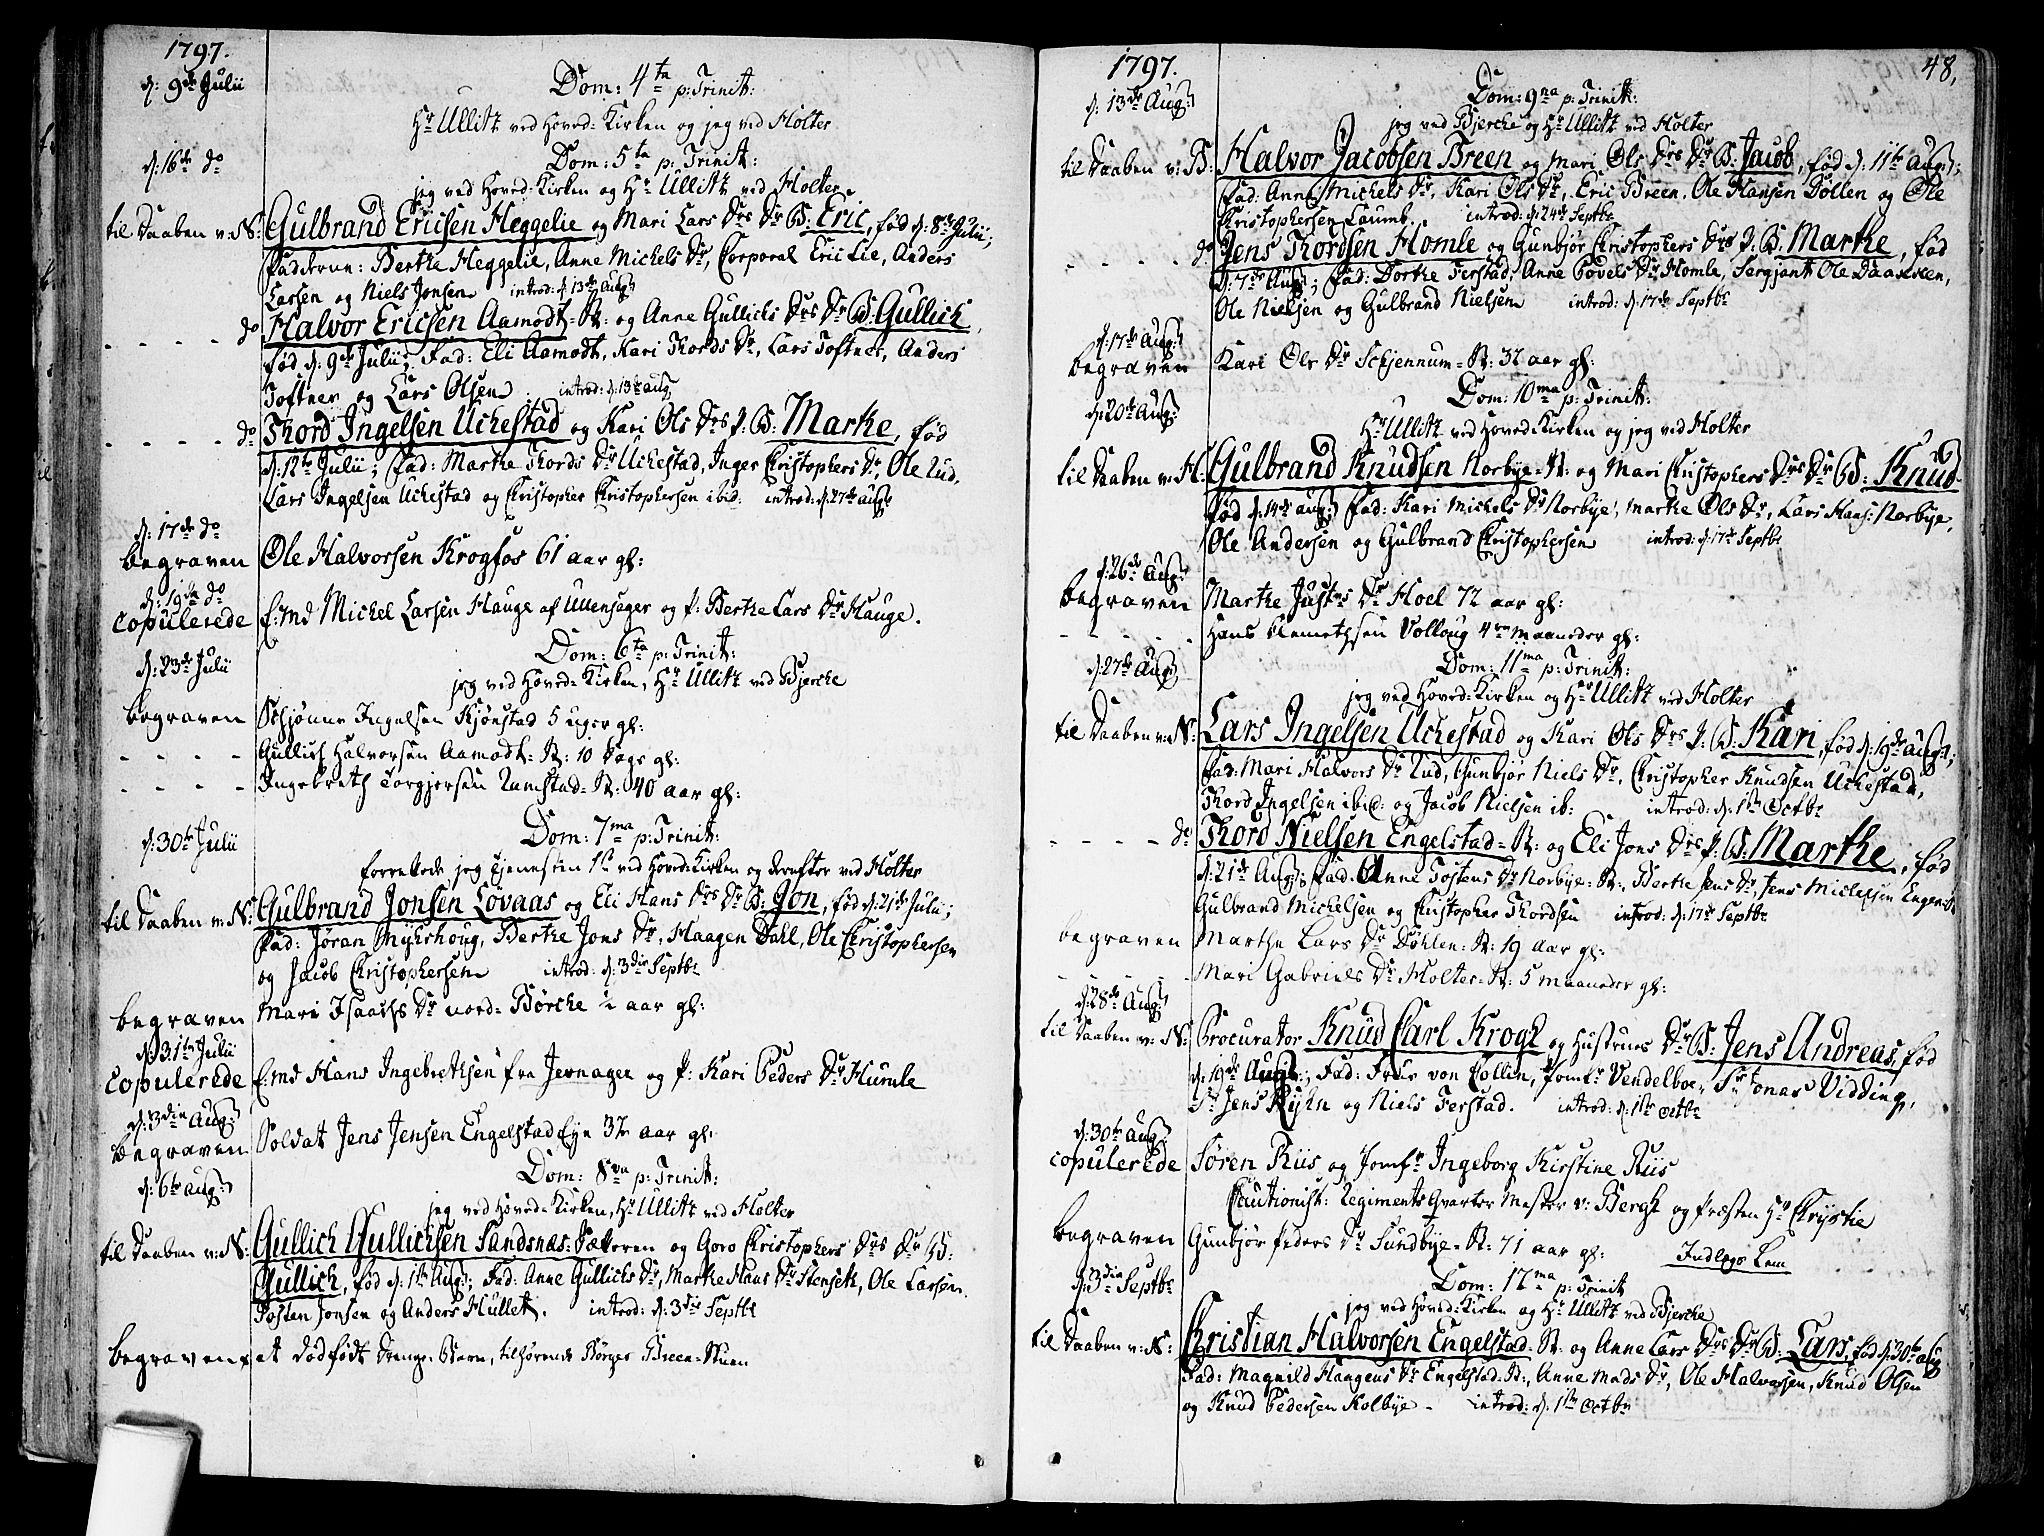 1797.
d: 9de Julii
Dom: 4ta p: Trinit:
Hr Ullitz ved Hoved-Kirken og jeg ved Holter
d: 16de do
Dom: 5ta p: Trinit:
jeg ved Hoved-Kirken og Hr Ullitz ved Holter
til Daaben v: N: Gulbrand Ericsen Heggelie og Mari Lars Drs Dr B: Eric, fød d: 8de Julii;
Fadderne: Berthe Heggelie, Anne Michels Dr, Corporal Eric Lie, Anders
Larsen og Niels Jonsen introd: d: 13de Aug:
- - - - do Halvor Ericsen Aamodt-R: og Anne Gullichs Drs Dr B: Gullich,
fød d: 9de Julii; Fad: Eli Aamodt, Kari Thords Dr, Lars Toftner, Anders
Toftner og Lars Olsen introd: d: 13de aug
- - - - do Thord Ingelsen Uchestad og Kari Ols Drs P: B: Marthe, fød
d: 12te Julii; Fad: Marthe Thords Dr Uchestad, Inger Christophers Dr, Ole Lud,
Lars Ingelsen Uchestad og Christopher Christophersen ibid: introd: d: 27de aug:
d: 17de do
begraven Ole Halvorsen Krogfos 61 aar gl:
d: 19de do
copulerede E: md Michel Larsen Hauge af Ullensager og P: Berthe Lars Dr Hauge.
Dom: 6ta p: Trinit:
d: 23de Julii
jeg ved Hoved-Kirken, Hr Ullitz ved Bjercke
begraven Schjønne Ingelsen Kjønstad 5 uger gl:
- - - - Gullich Halvorsen Aamodt-R: 10 Dage gl:
- - - - Ingebreth Torgjersen Ramstad-R: 40 aar gl:
Dom: 7ma p: Trinit:
d: 30te Julii
forrettede jeg Tjenesten 1st ved Hoved-Kirken og derefter ved Holter
til Daaben v: N: Gulbrand Jonsen Lovaas og Eli Hans Drs Dr B: Jon, fød d: 21de Julii;
Fad: Jøran Myhrhoug, Berthe Jons Dr, Haagen Dahl, Ole Christophersen
og Jacob Christophersen introd: d: 3die Septbr
begraven Mari Isaachs Dr nord-Børche ½ aar gl:
d: 31te Julii
copulerede E: md Hans Ingebrethsen fra Jevnager og P: Kari Peders Dr Humle
d: 3die Aug:
begraven Soldat Jens Jensen Engelstad Eye 32 aar gl:
Dom: 8va p: Trinit:
d: 6te Aug:
jeg ved Hoved-Kirken, Hr Ullitz ved Holter
til Daaben v: N: Gullich Gullichsen Sandsnæs-Sæteren og Goro Christophers Drs Dr B:
Gullich, fød d: 1ste Aug: Fad: Anne Gullichs Dr, Marthe Hans Dr Stenseth, Ole Larsen,
Tosten Jonsen og Anders Hullet. introd: d: 3die Septbr
begraven et dødfødt Drenge-Barn, tilhørende Børger Breen-Stuen
1797.
48.
d: 13de Aug:
Dom: 9na p: Trinit:
jeg ved Bjercke og Hr Ullitz ved Holter
til Daaben v: B: Halvor Jacobsen Breen og Mari Ols Drs Dr B: Jacob, fød d: 11te Aug:;
Fad: Anne Michels Dr, Kari Ols Dr, Eric Breen, Ole Hansen Døllen og Ole
Christophersen Laumb. introd: d: 24de Septbr
- - - - do Jens Thordsen Homle og Gunbjør Christophers Drs P: B: Marthe, fød
d: 7de Aug:; Fad: Dorthe Ferstad, Anne Povels Dr Homle, Sergjant Ole Daaslien,
Ole Nielsen og Gulbrand Nielsen introd: d: 17de Septbr
d: 17de Aug:
begraven Kari Ols Dr Schjennum-R: 32 aar gl:
Dom: 10ma p: Trinit:
d: 20de Aug:
Hr Ullitz ved Hoved-Kirken og jeg ved Holter
til Daaben v: H: Gulbrand Knudsen Norbye-R: og Mari Christophers Drs Dr B: Knud
fød d: 14de aug: Fad: Kari Michels Dr Norbye, Marthe Ols Dr, Lars Hans: Norbye,
Ole Andersen og Gulbrand Christophersen introd: d: 17de Septbr
d: 26de Aug:
begraven Marthe Justs Dr Hoel 72 aar gl:
- - - - Hans Clemethsen Volloug 4re maaneder gl:
d: 27de Aug:
Dom: 11ma p: Trinit:
jeg ved Hoved-Kirken og Hr Ullitz ved Holter
til Daaben v: N: Lars Ingelsen Uchestad og Kari Ols Drs P: B: Kari, fød d: 19de aug:;
Fad: Mari Halvors Dr Lud, Gunbjør Niels Dr, Christopher Knudsen Uchestad,
Thord Ingelsen ibid: og Jacob Nielsen ib: introd: d: 1ste Octbr
- - - - do Thord Nielsen Engelstad-R: og Eli Jons Drs P: B: Marthe, fød
d: 21de Aug: Fad: Anne Tostens Dr Norbye-R:, Berthe Jens Dr, Jens Michelsen Engerst:
Gulbrand Michelsen og Christopher Thordsen introd: d: 17de Septbr
begraven Marthe Lars Dr Døhlen-R: 19 aar gl:
- - - - Mari Gabriels Dr Holter-R: 5 maaneder gl:
d: 28de Aug:
til Daaben v: N: Procurator Knud Carl Krogh og Hustrues Dr B: Jens Andreas, fød
d: 19de Aug:, Fad: Frue von Collin, Jomfr Vendelboe, Sr Jonas Vidding,
Sr Jens Ryhn og Niels Ferstad. introd: d: 1ste Octbr
d: 30te Aug:
copulerede Søren Riis og Jomfr Ingeborg Kirstine Riis
Cautionist: Regiments Qvarter Mester v: Bergh og Præsten Hr Chrystie
begraven Gunbjør Peders Dr Sundbye-R: 71 aar gl: Indlægs Lem
d: 3die Septbr
Dom: 12ma p: Trinit
jeg ved Hoved-Kirken og Hr Ullitz ved Bjercke
til Daaben v: N: Christian Halvorsen Engelstad-R: og Anne Lars Drs Dr B: Lars, fød d: 30te aug
Fad: Magnild Haagens Dr Engelstad-R:, Anne Mads Dr, Ole Halvorsen, Knud Olsen
og Knud Pedersen Kolbye - introd: d: 1ste Octbr